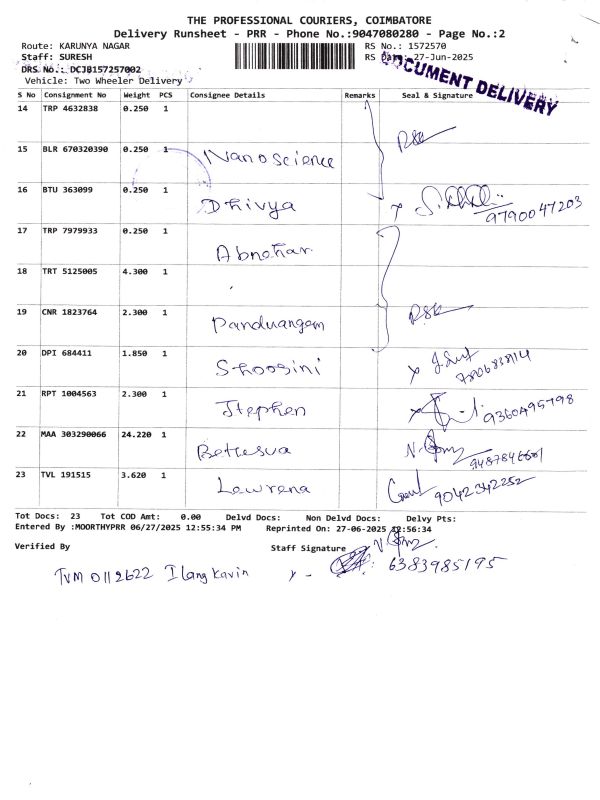 THE PROFESSIONAL COURIERS, COIMBATORE
Delivery Runsheet - PRR - Phone No.:9047080280 - Page No.:2
Route: KARUNYA NAGAR RS No.: 1572570
Staff: SURESH RS Date: 27-Jun-2025
DRS No.: DCJB157257002
Vehicle: Two Wheeler Delivery
DOCUMENT DELIVERY
S No Consignment No Weight PCS Consignee Details Remarks Seal & Signature
14 TRP 4632838 0.250 1
15 BLR 670320390 0.250 1 Nanoscience
16 BTU 363099 0.250 1 Dhivya 9790047203
17 TRP 7979933 0.250 1 Abnehar
18 TRT 5125005 4.300 1
19 CNR 1823764 2.300 1 Panduangem
20 DPI 684411 1.850 1 Shoogini
21 RPT 1004563 2.300 1 Stephen 9360495798
22 MAA 303290066 24.220 1
23 TVL 191515 3.620 1 Lewrena 9042342252
Tot Docs: 23 Tot COD Amt: 0.00 Delvd Docs: Non Delvd Docs: Delvy Pts:
Entered By :MOORTHYPRR 06/27/2025 12:55:34 PM Reprinted On: 27-06-2025 12:56:34
Verified By Staff Signature
TVM 0112622 Ilangkavin 6383985195